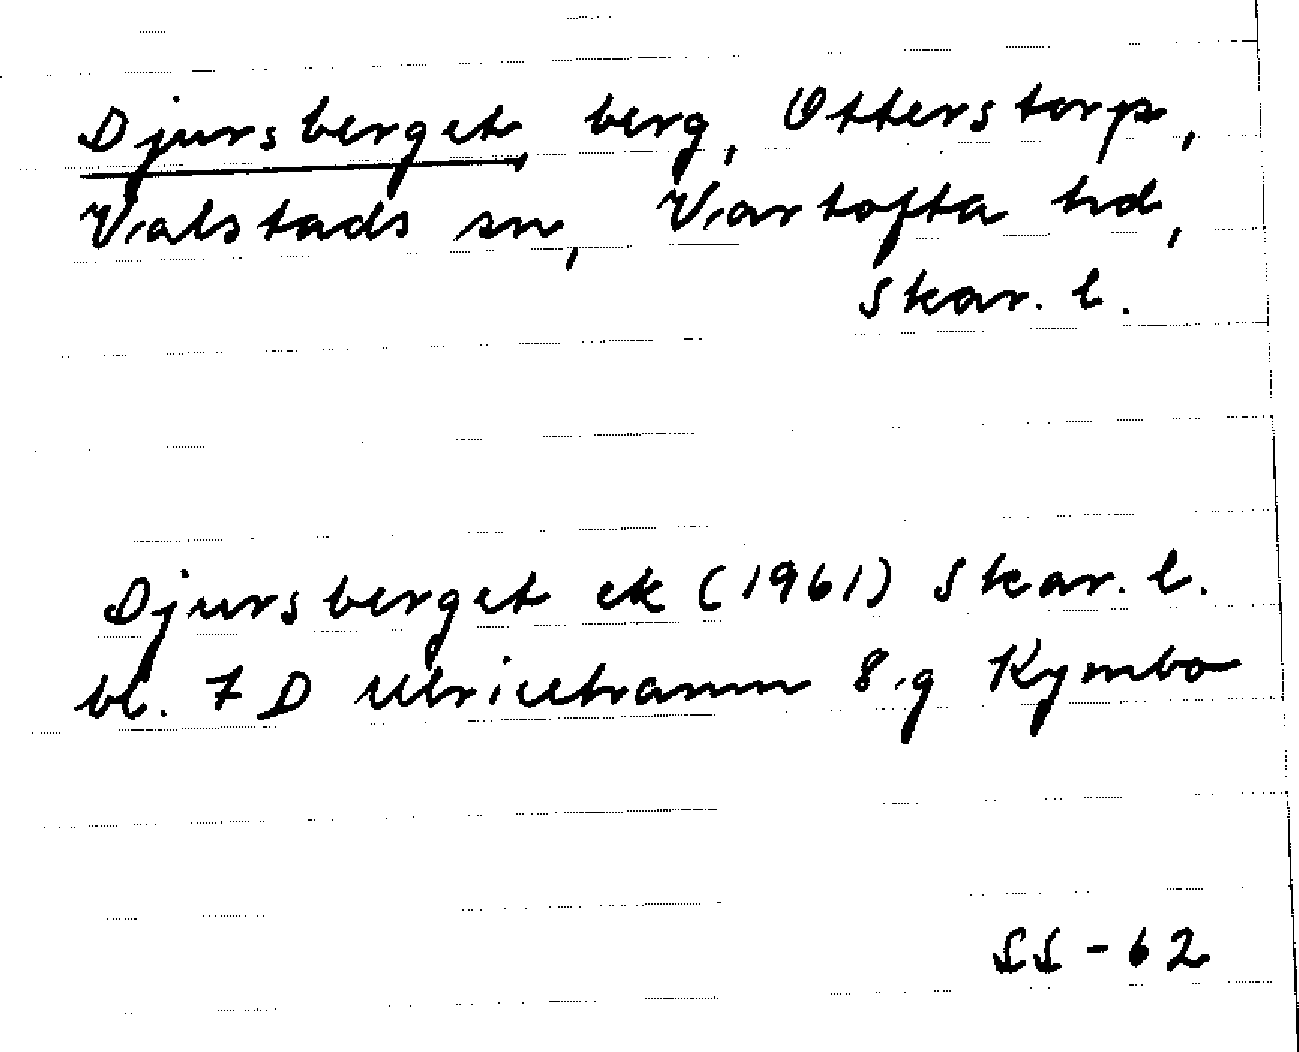 Djursberget, berg, Otterstorp,
Valstads sn, Vartofta hd,
Skar. l.
Djursberget ek (1961) Skar. l.
bl. 7 D Ulricehamn 8. g Kymbo
SS - 62